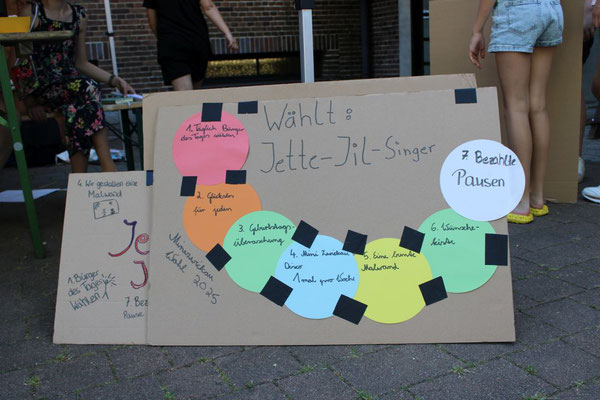 Wählt:
Jette-Jil-Singer
1. Täglich Bürger
des Tages wählen!
2. Glückstee
für jeden
3. Geburtstags-
überraschung
4. Mini Landau
Disco
1 mal pro Woche
5. Eine bunte
Malwand
6. Wünsche-
kiste
7. Bezahlte
Pausen
Wahl 2025
4. Wir gestalten eine
Malwand
1. Bürger
des Tages
Wählen
7. Bezahlte
Pause